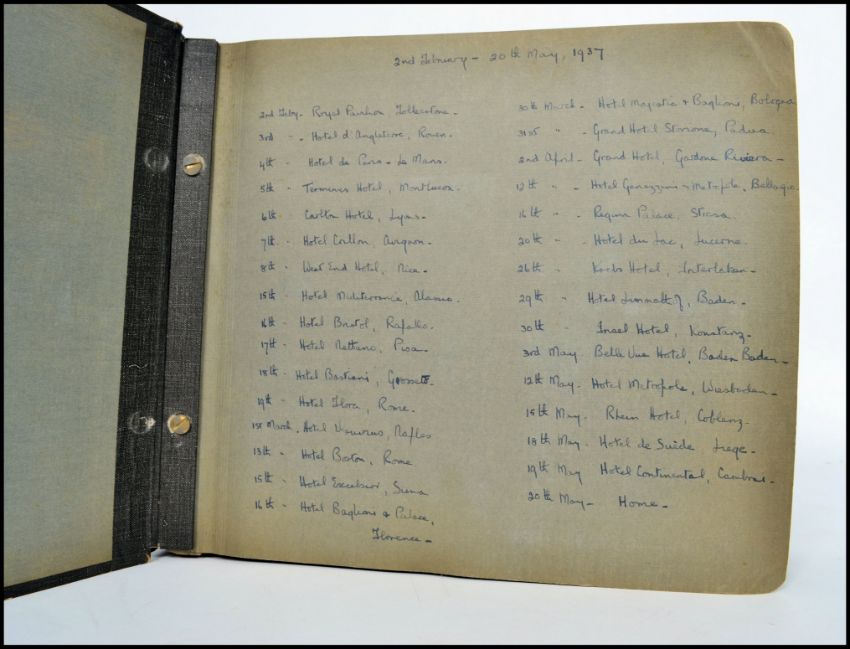 2nd February - 20th May, 1937
2nd Feby - Royal Pavilion, Folkestone.
3rd " - Hotel d'Angleterre, Rouen.
4th " Hotel de Paris - Le Mans.
5th " Terminus Hotel, Montlucon.
6th " Carlton Hotel, Lyons.
7th " Hotel Crillon, Avignon.
8th " West End Hotel, Nice.
15th " Hotel Mediterranée,
16th " Hotel Bristol, Rapallo.
17th " Hotel Nettuno, Pisa.
18th " Hotel Bastiani, Grosseto.
19th " Hotel Flora, Rome.
1st March. Hotel Vesuvius, Naples
13th " Hotel Boston, Rome
15th " Hotel Excelsior, Siena
16th " Hotel Baglioni & Palace,
Florence -
30th March - Hotel Majestic & Baglioni, Bologna
31st " Grand Hotel Storione, Padua.
2nd April - Grand Hotel, Gardone Riviera -
12th " Hotel Genazzini & Metropole, Bellagio.
16th " Regina Palace, Stresa.
20th " - Hotel du Lac, Lucerne.
26th " Hotel, Interlaken -
29th " Hotel Limmathof, Baden -
30th " Insel Hotel, Konstanz.
3rd May. Belle Vue Hotel, Baden Baden -
12th May. Hotel Metropole, Wiesbaden -
15th May. Rhein Hotel, Coblenz.
18th May - Hotel de Suède Liege -
19th May Hotel Continental, Cambrai -
20th May - Home -